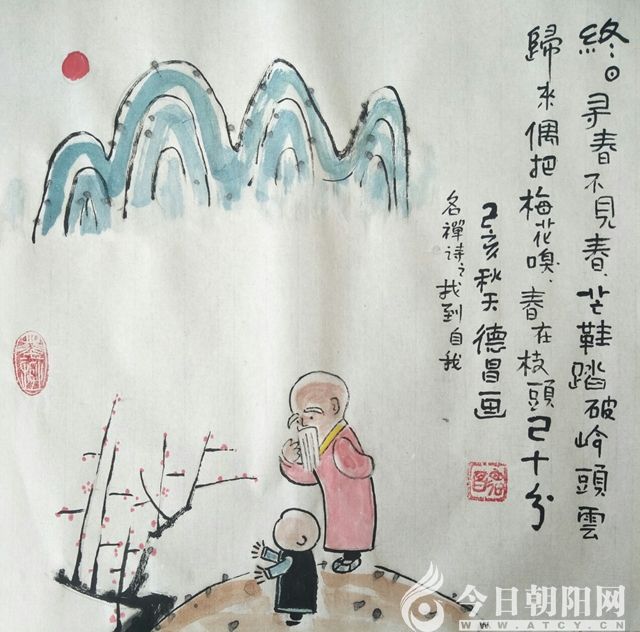 終日寻春不見春、芒鞋踏破岭頭雲
歸来偶把梅花嗅、春在枝頭已十分
己亥秋天德昌画
名禪诗之找到自我
今日朝阳网
WWW.ATCY.CN